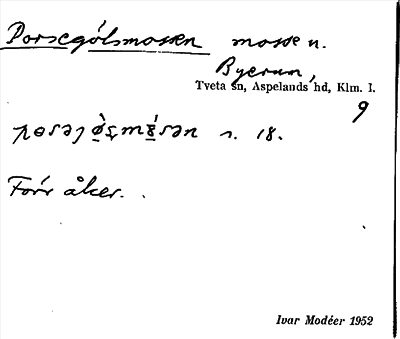 Porsegölsmossen mosse n.
Byerum,
Tveta sn, Aspelands hd, Klm. l.
9
s. 18.
Förr åker.
Ivar Modéer 1952